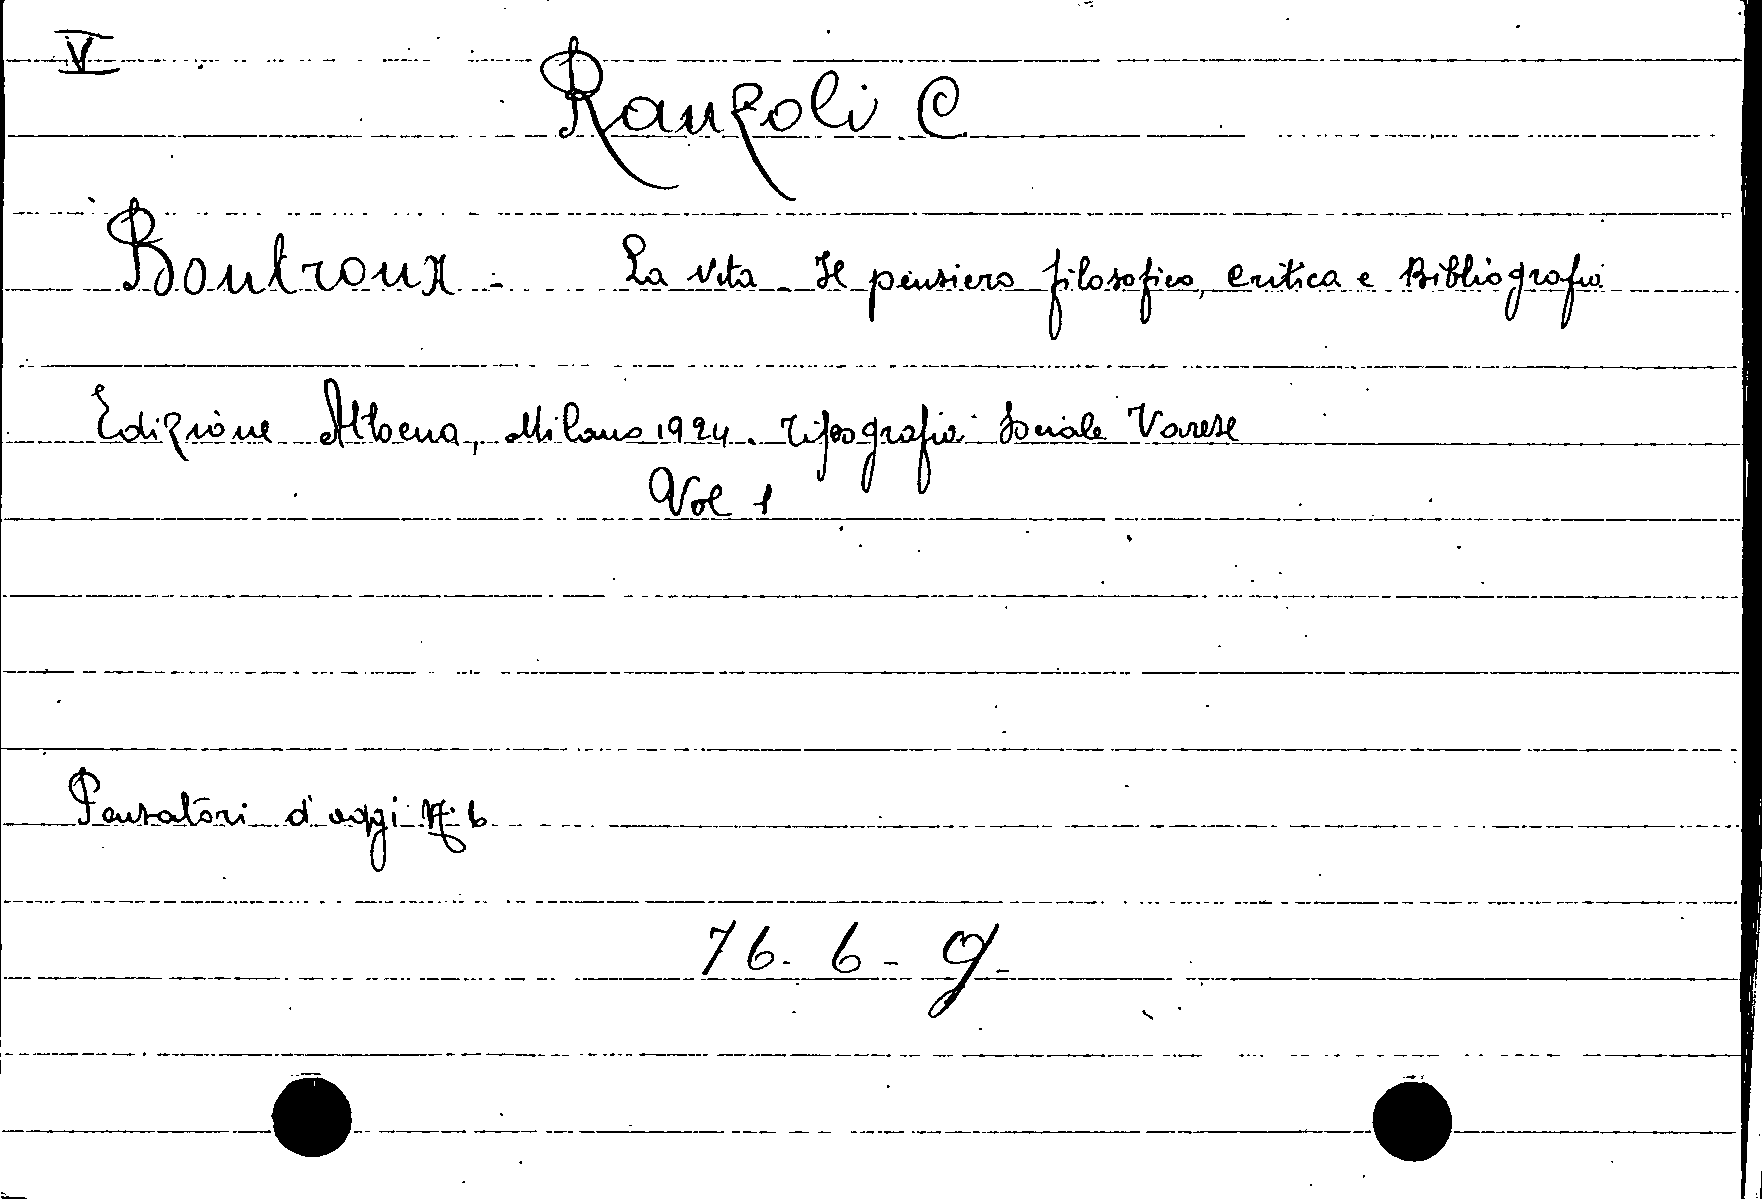 V
Ranzoli C
Boutroux - La vita - Il pensiero filosofico, critica e Bibliografia
Edizione Athena, Milano 1924. Tipografia Sociale Varese
Vol 1
Pensatori d'oggi N. 6
76 - 6 - g -